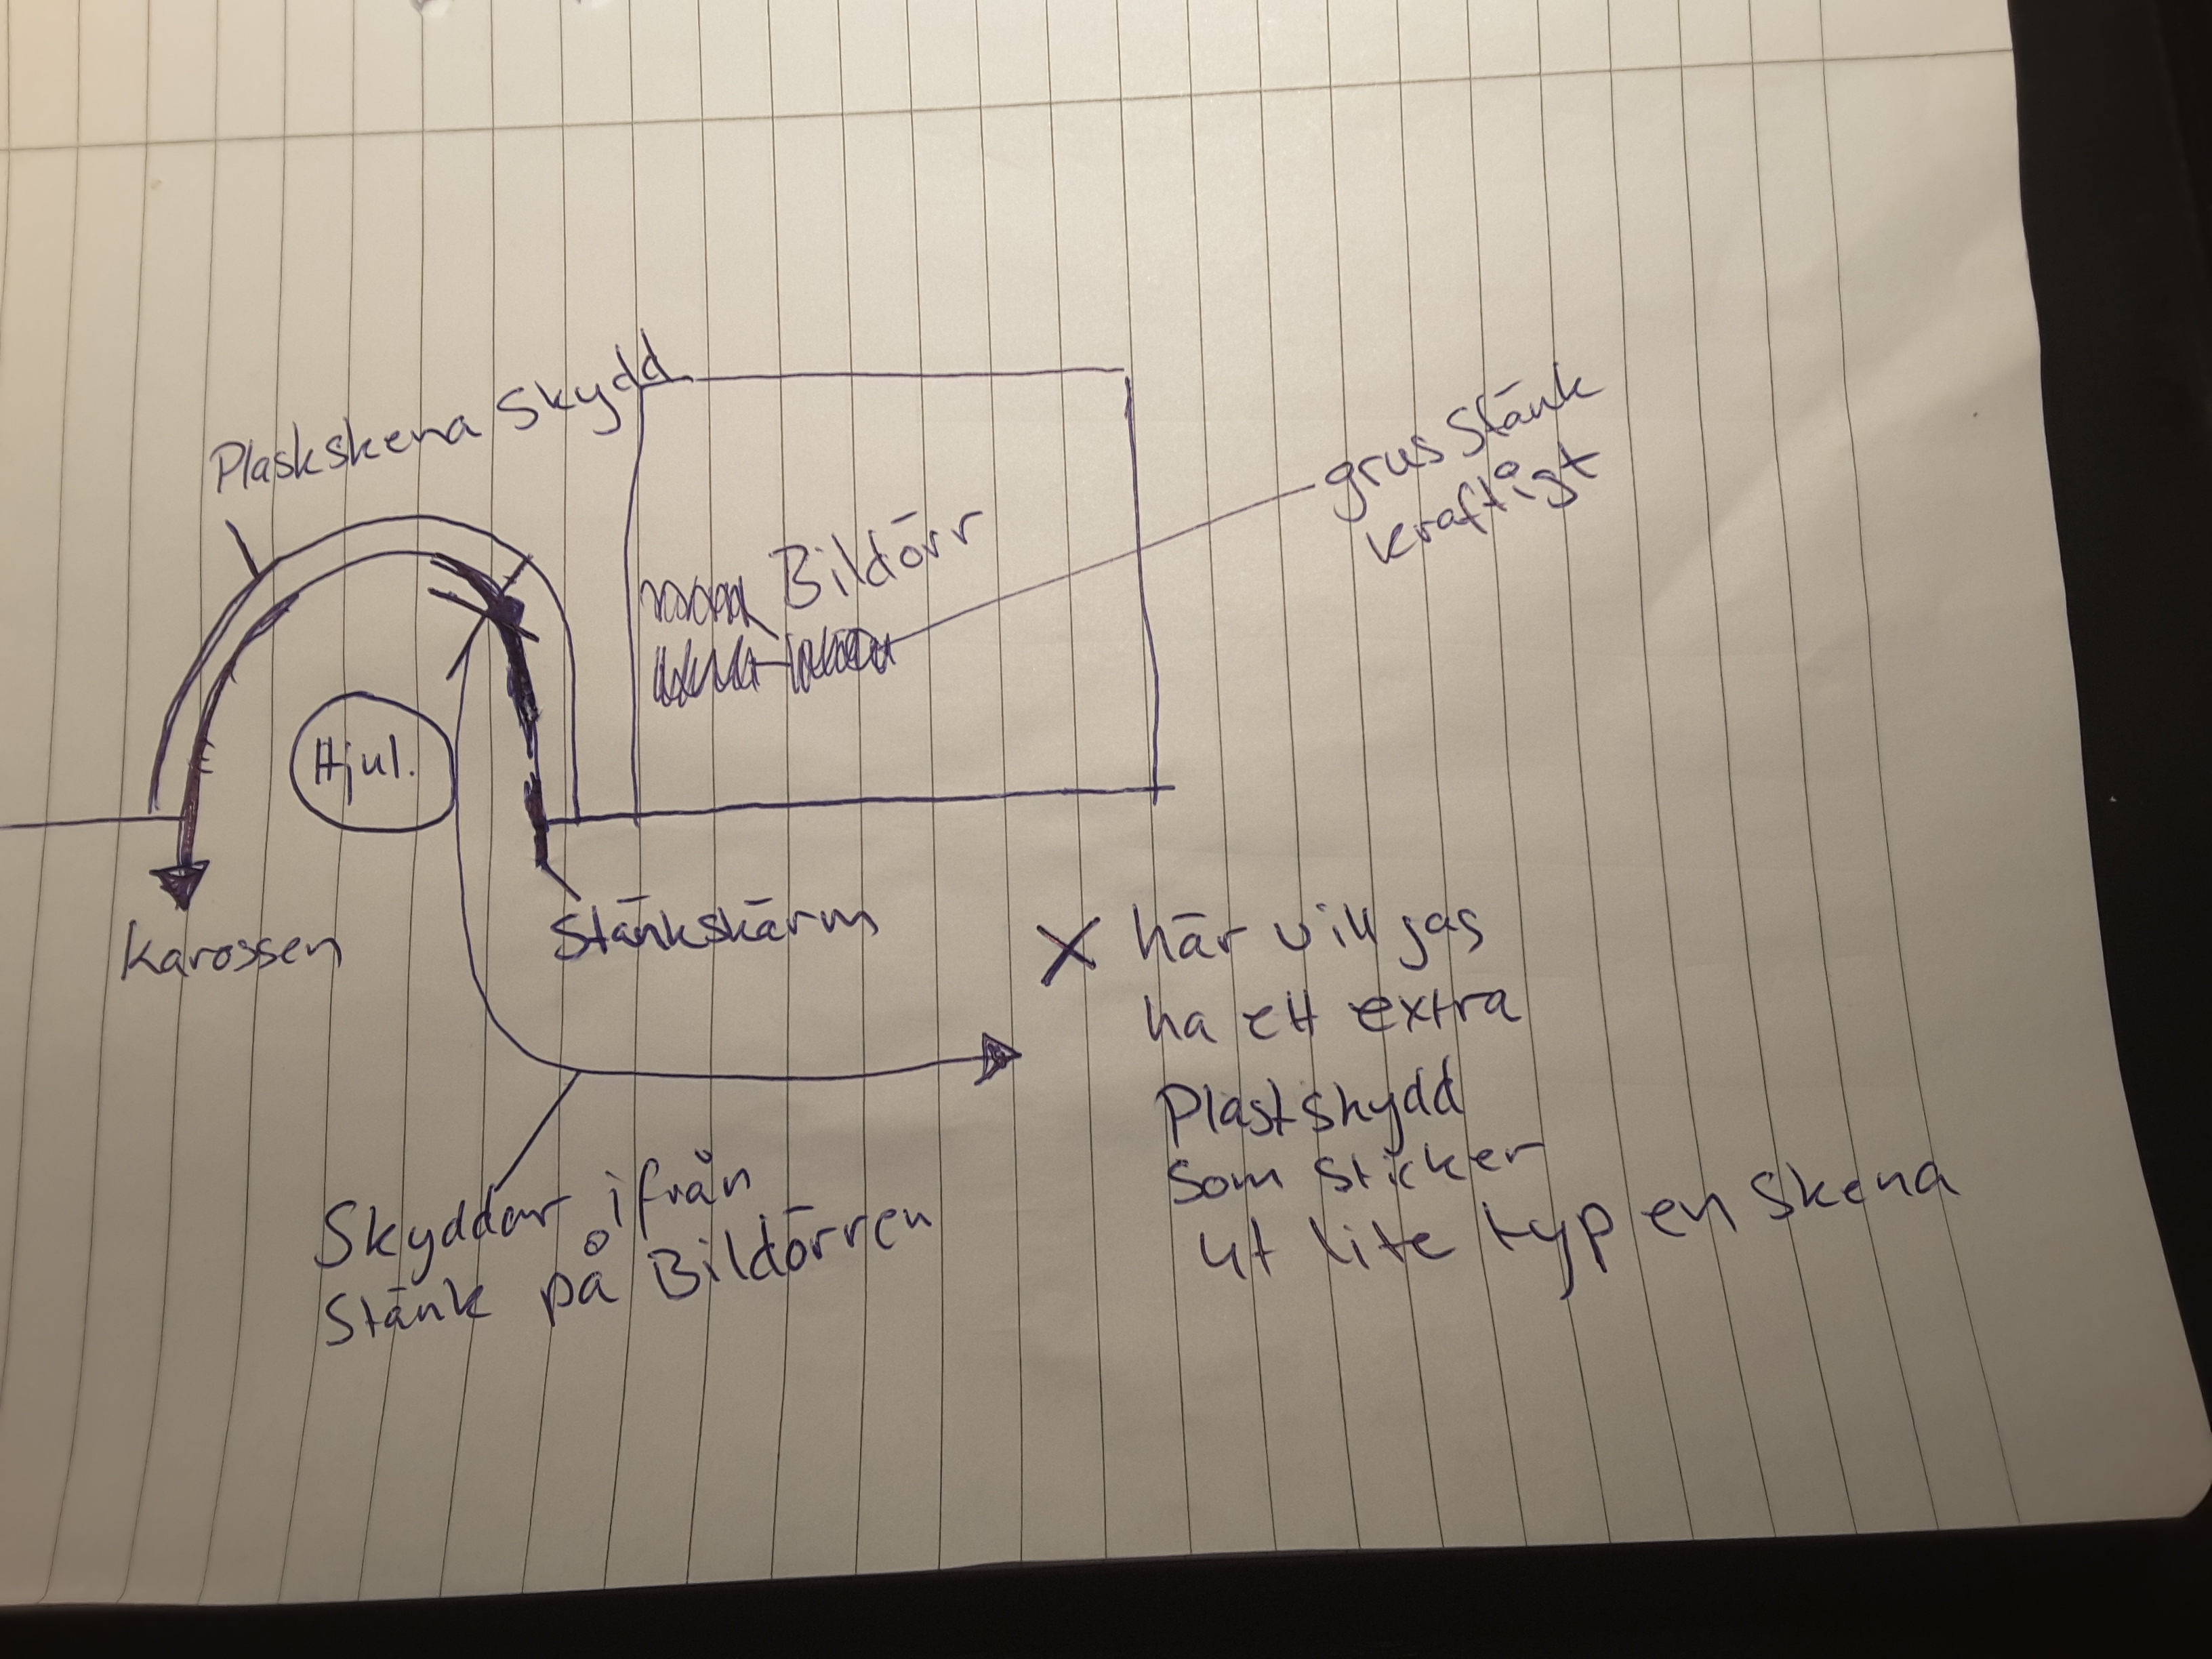 Plaskskena Skydd
grus stänk
kraftigt
Bildörr
Hjul.
Karossen
Stänkskärm
X här vill jag
ha ett extra
Plastskydd
som sticker
ut lite typ en skena
Skyddar ifrån
Stänk på Bildörren